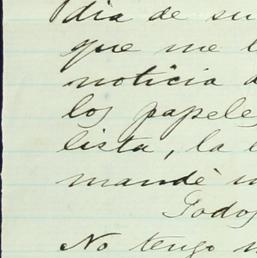 dia de su
que me l
noticia d
los papele
lista, la
mandè
Todos
No tengo